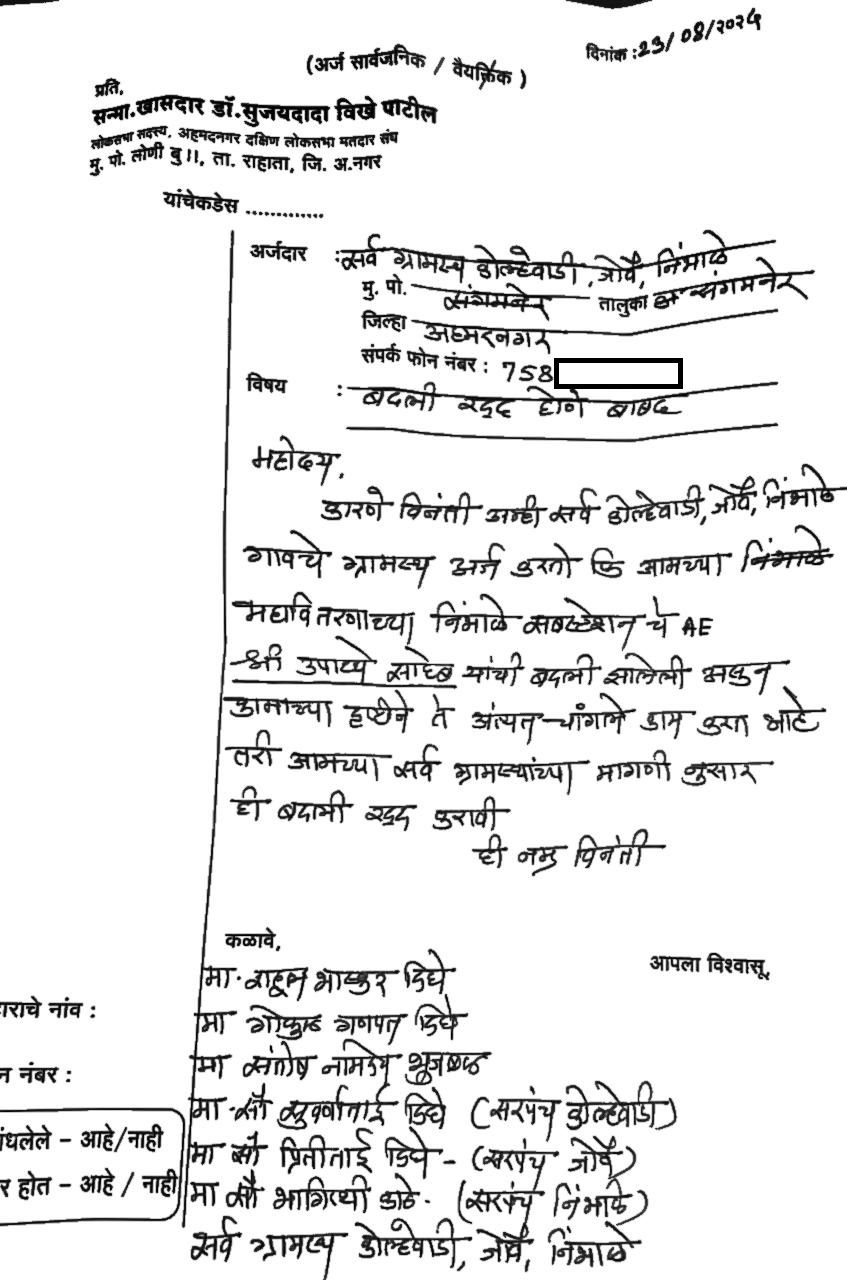 दिनांक :23/08/2024
(अर्ज सार्वजनिक / वैयक्तिक )
प्रति,
सन्मा.खासदार डॉ.सुजयदादा विखे पाटील
लोकसभा सदस्य, अहमदनगर दक्षिण लोकसभा मतदार संघ
मु. पो. लोणी बु ॥, ता. राहाता, जि. अ.नगर
यांचेकडेस .............
अर्जदार : सर्व ग्रामस्थ कोल्हेवाडी, जोर्वे, निंभाळे
मु. पो. संगमनेर तालुका संगमनेर
जिल्हा अहमदनगर
संपर्क फोन नंबर : 758
विषय : बदली रद्द होणे बाबद
महोदय,
कारणे विनंती अम्ही सर्व कोल्हेवाडी, जोर्वे, निंभाळे
गावचे ग्रामस्थ अर्ज करतो कि आमच्या निंभाळे
महावितरणाच्या निंभाळे सबस्टेशन चे AE
श्री उपाध्ये साहेब यांची बदली झालेली असुन
कामाच्या दृष्टीने ते अंत्यत चांगले काम करत आहे
तरी आमच्या सर्व ग्रामस्थांच्या मागणी नुसार
ही बदली रद्द करावी
ही नम्र विनंती
कळावे,
आपला विश्वासू,
मा. राहूल भास्कर दिघे
ाराचे नांव :
मा गोकुळ गणपत दिघे
न नंबर :
मा संतोष नामदेव भुजबळ
मा. सौ सुवर्णाताई दिघे (सरपंच कोल्हेवाडी)
ांधलेले - आहे/नाही
मा सौ प्रितीताई दिघे - (सरपंच जोर्वे)
र होत - आहे / नाही
मा सौ भागिरथी काठे. (सरपंच निंभाळे)
सर्व ग्रामस्थ कोल्हेवाडी, जोर्वे, निंभाळे